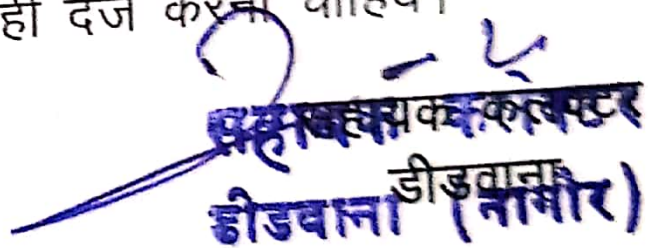 ही दर्ज करना चाहिये।
सहायक कलेक्टर
डीडवाना
डीडवाना (नागौर)